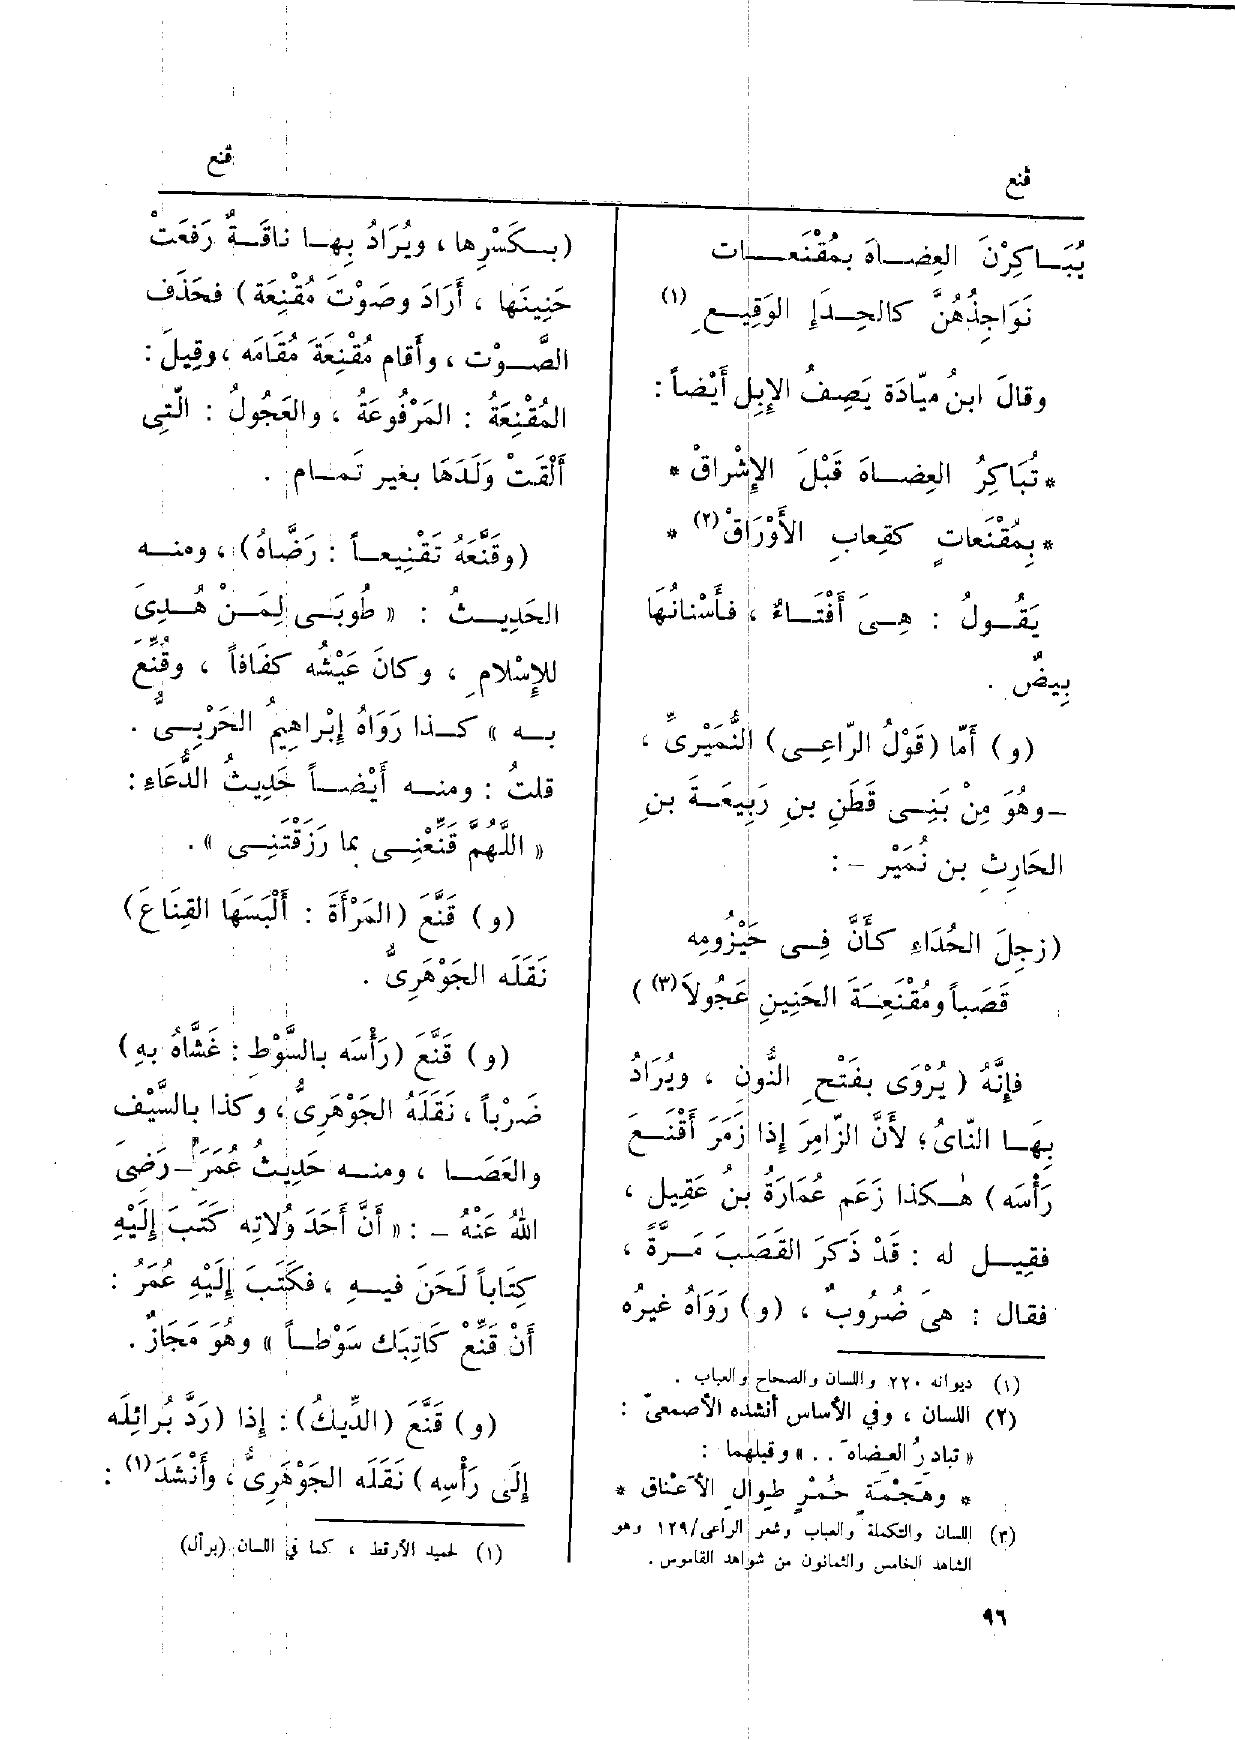 قنع
قنع
يُبَـاكِرْنَ العِضَـاهَ بمُقْنَعَـات
نَوَاجِذُهُنَّ كالحِـدَإِ الوَقِيـعِ (١)
وقالَ ابنُ ميّادَة يَصِفُ الإِبِل أَيْضاً :
* تُبَاكِرُ العِضَـاهَ قَبْلَ الإِشْراقْ *
* بِمُقْنَعاتٍ كقِعابِ الأَوْرَاقْ (٢) *
يَقُـولُ : هِـىَ أَفْتَـاءٌ ، فـأَسْنانُهَا
بِيضٌ .
(و) أَمّا (قَوْلُ الرّاعِـى) النُّمَيْرِىِّ ،
–وهُوَ مِنْ بَنِـى قَطَنِ بنِ رَبِيعَـةَ بنِ
الحَارِثِ بن نُمَيْر – :
(زجِلَ الحُدَاءِ كأَنَّ فِـى حَيْزُومِه
قَصَباً ومُقْنَعَـةَ الحَنِينِ عَجُولاَ (٣) )
فإِنَّهُ ( يُرْوَى بفَتْحِ النُّونِ ، ويُرَادُ
بِهَـا النّاىُ ؛ لأَنَّ الزّامِرَ إِذا زَمَرَ أَقْنَـعَ
رَأْسَه ) هٰـكذا زَعَم عُمَارَةُ بنُ عَقِيل ،
فقِيـل له : قَدْ ذَكَرَ القَصَبَ مَـرَّةً ،
فقال : هىَ ضُرُوبٌ ، (و) رَوَاهُ غيرُه
(١) ديوانه ٢٢٠ واللسان والصحاح والعباب .
(٢) اللسان ، وفي الأساس أنشده الأصمعىّ :
« تبادرُ العضاهَ . . » وقبلهما :
* وهَجْمَةٍ حُمْرٍ طِوالِ الأَعْناق *
(٣) اللسان والتكملة والعباب وشعر الراعى/١٢٩ وهو
الشاهد الخامس والثمانون من شواهد القاموس .
(بـكَسْرِها ، ويُرَادُ بِهـا ناقَـةٌ رَفَعَتْ
حَنِينَها ، أَرَادَ وصَوْتَ مُقْنِعَة ) فحَذَف
الصَّـوْت ، وأَقام مُقْنِعَةَ مُقَامَه ، وقِيلَ :
المُقْنِعَةُ : المَرْفُوعَةُ ، والعَجُولُ : الَّتِى
أَلْقَتْ وَلَدَهَا بغير تَمـام .
(وقَنَّعَهُ تَقْنِيعـاً : رَضَّاهُ) ، ومنـه
الحَدِيـثُ : « طُوبَـى لِمَـنْ هُـدِىَ
للإِسْلامِ ، وكانَ عَيْشُه كَفَافاً ، وقُنِّعَ
بـه » كـذا رَوَاهُ إِبْراهِيمُ الحَرْبِـىُّ .
قلتُ : ومنـه أَيْضـاً حَدِيثُ الدُّعَاءِ :
« اللَّهُمَّ قَنِّعْنِـى بما رَزَقْتَنِـى » .
(و) قَنَّعَ (المَرْأَةَ : أَلْبَسَهَا القِنَاعَ)
نَقَلَه الجَوْهَرِىُّ .
(و) قَنَّعَ (رَأْسَه بالسَّوْطِ : غَشَّاهُ بهِ)
ضَرْباً ، نَقَلَهُ الجَوْهَرِىُّ ، وكذا بالسَّيْف
والعَصَـا ، ومنـه حَدِيثُ عُمَرَ – رَضِىَ
اللهُ عَنْهُ – : « أَنَّ أَحَدَ وُلاتِه كَتَبَ إِلَيْهِ
كِتَاباً لَحَنَ فيـهِ ، فكَتَبَ إِلَيْهِ عُمَرُ :
أَنْ قَنِّعْ كَاتِبَك سَوْطـاً » وهُوَ مَجَازٌ .
(و) قَنَّعَ (الدِّيكُ) : إِذا (رَدَّ بُرَائِلَه
إِلَى رَأْسِه ) نَقَلَه الجَوْهَرِىُّ ، وأَنْشَدَ (١) :
(١) لحميد الأرقط ، كما في اللسان (برأل)
٩٦